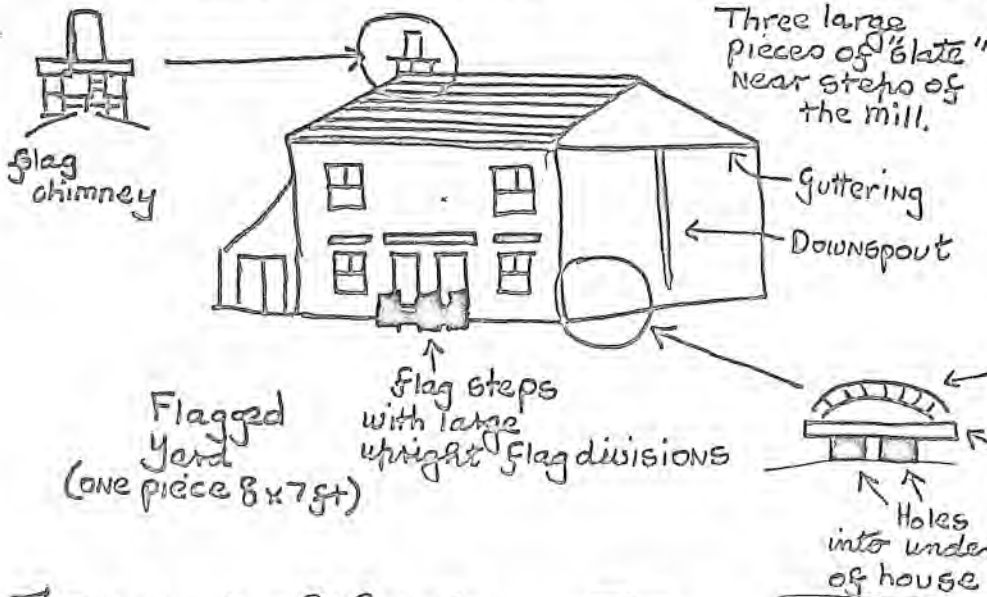 Three large
pieces of "slate"
near steps of
the mill.
flag
chimney
Guttering
Downspout
flag steps
with large
upright flag divisions
Flagged
Yard
(one piece 8 x 7 ft)
Holes
into under
of house